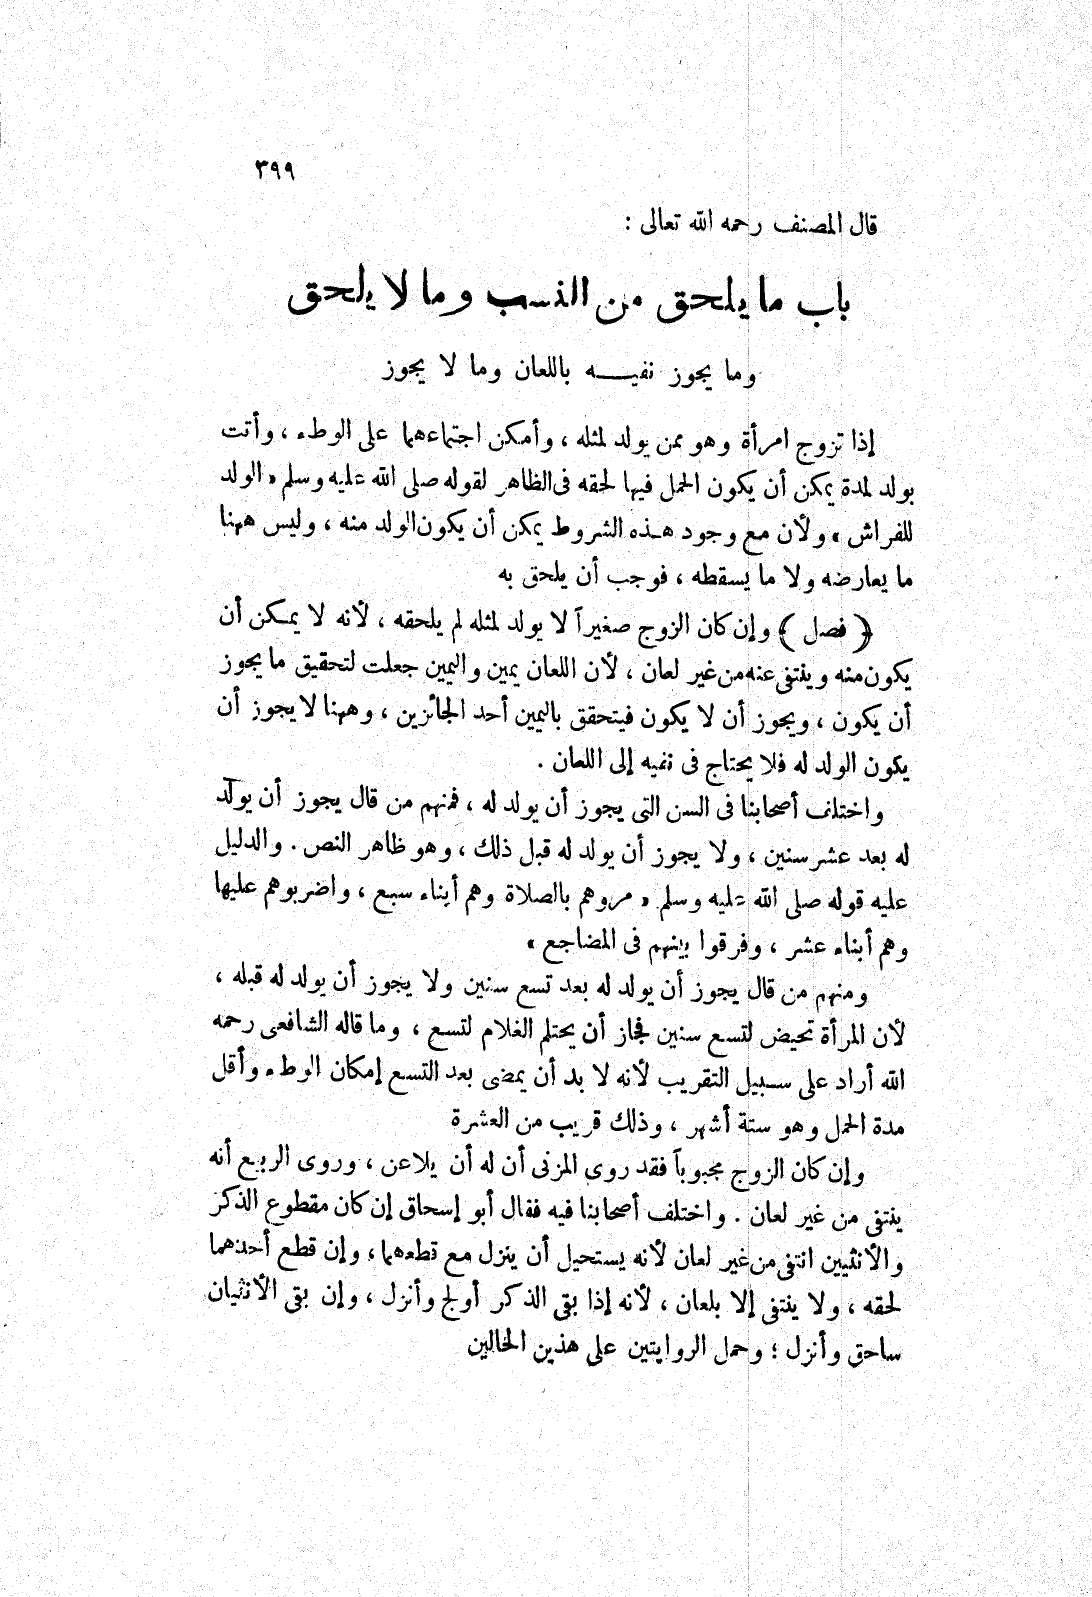 ٣٩٩
قال المصنف رحمه الله تعالى :
باب ما يلحق من النسب وما لا يلحق
وما يجوز نفيـــه باللعان وما لا يجوز
إذا تزوج امرأة وهو ممن يولد لمثله ، وأمكن اجتماعهما على الوطء ، وأتت
بولد لمدة يمكن أن يكون الحمل فيها لحقه فى الظاهر لقوله صلى الله عليه وسلم « الولد
للفراش » ولأن مع وجود هـذه الشروط يمكن أن يكون الولد منه ، وليس ههنا
ما يعارضه ولا ما يسقطه ، فوجب أن يلحق به
( فصل ) وإن كان الزوج صغيراً لا يولد لمثله لم يلحقه ، لأنه لا يمـكن أن
يكون منه وينتفى عنه من غير لعان ، لأن اللعان يمين واليمين جعلت لتحقيق ما يجوز
أن يكون ، ويجوز أن لا يكون فيتحقق باليمين أحد الجائزين ، وههنا لا يجوز أن
يكون الولد له فلا يحتاج فى نفيه إلى اللعان .
واختلف أصحابنا فى السن التى يجوز أن يولد له ، فمنهم من قال يجوز أن يولد
له بعد عشر سنين ، ولا يجوز أن يولد له قبل ذلك ، وهو ظاهر النص . والدليل
عليه قوله صلى الله عليه وسلم « مروهم بالصلاة وهم أبناء سبع ، واضربوهم عليها
وهم أبناء عشر ، وفرقوا بينهم فى المضاجع »
ومنهم من قال يجوز أن يولد له بعد تسع سنين ولا يجوز أن يولد له قبله ،
لأن المرأة تحيض لتسع سنين فجاز أن يحتلم الغلام لتسع ، وما قاله الشافعى رحمه
الله أراد على سـبيل التقريب لأنه لا بد أن يمضى بعد التسع إمكان الوطء وأقل
مدة الحمل وهو ستة أشهر ، وذلك قريب من العشرة
وإن كان الزوج مجبوباً فقد روى المزنى أن له أن يلاعن ، وروى الربيع أنه
ينتفى من غير لعان . واختلف أصحابنا فيه فقال أبو إسحاق إن كان مقطوع الذكر
والأنثيين انتفى من غير لعان لأنه يستحيل أن ينزل مع قطعهما ، وإن قطع أحدهما
لحقه ، ولا ينتفى إلا بلعان ، لأنه إذا بقى الذكر أولج وأنزل ، وإن بقى الأنثيان
ساحق وأنزل ؛ وحمل الروايتين على هذين الحالين